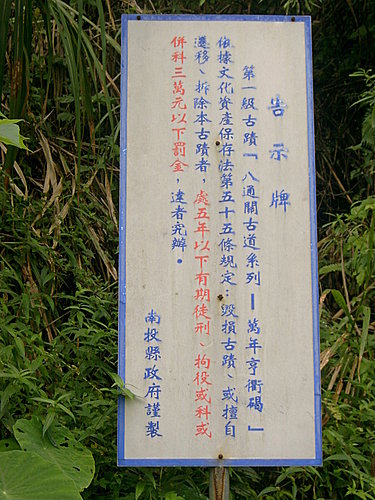 告示牌
第一級古蹟「八通關古道系列—萬年亨衢碣」
依據文化資產保存法第五十五條規定：毀損古蹟、或擅自
遷移、拆除本古蹟者，處五年以下有期徒刑、拘役或科或
併科三萬元以下罰金，違者究辦。
南投縣政府謹製